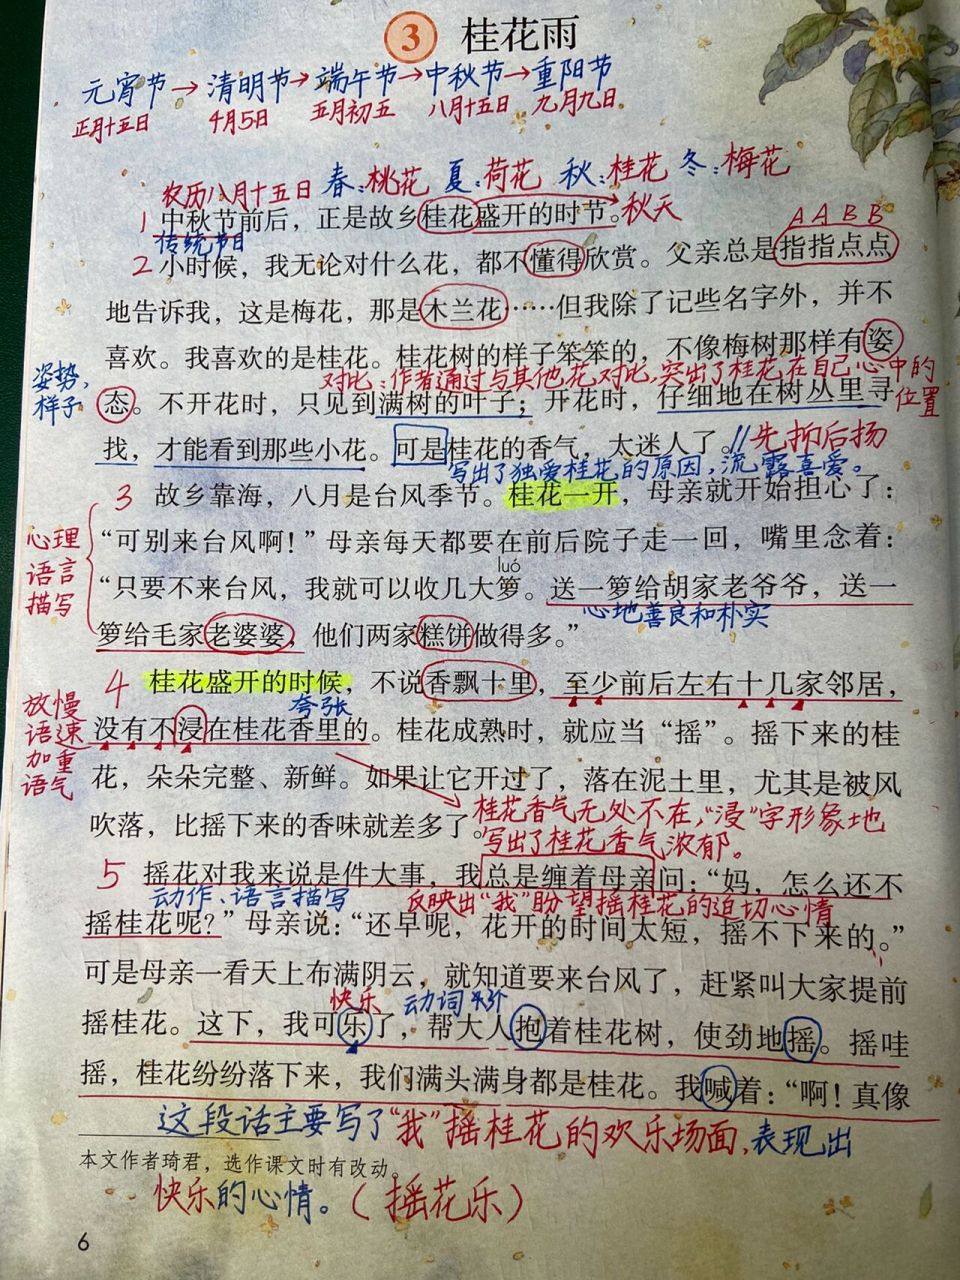 3 桂花雨
元宵节→清明节→端午节→中秋节→重阳节
正月十五日 4月5日 五月初五 八月十五日 九月九日
农历八月十五日 春:桃花 夏:荷花 秋:桂花 冬:梅花
1 中秋节前后，正是故乡桂花盛开的时节。秋天
传统节日
AABB
2 小时候，我无论对什么花，都不懂得欣赏。父亲总是指指点点
地告诉我，这是梅花，那是木兰花……但我除了记些名字外，并不
喜欢。我喜欢的是桂花。桂花树的样子笨笨的，不像梅树那样有姿
姿势，样子
对比：作者通过与其他花对比，突出了桂花在自己心中的位置
态。不开花时，只见到满树的叶子；开花时，仔细地在树丛里寻
找，才能看到那些小花。可是桂花的香气，太迷人了。//先抑后扬
写出了独爱桂花的原因，流露喜爱。
3 故乡靠海，八月是台风季节。桂花一开，母亲就开始担心了：
心理
语言
描写
“可别来台风啊！”母亲每天都要在前后院子走一回，嘴里念着：
luó
“只要不来台风，我就可以收几大箩。送一箩给胡家老爷爷，送一
心地善良和朴实
箩给毛家老婆婆，他们两家糕饼做得多。”
4 桂花盛开的时候，不说香飘十里，至少前后左右十几家邻居，
夸张
放慢
语速
加重
语气
没有不浸在桂花香里的。桂花成熟时，就应当“摇”。摇下来的桂
花，朵朵完整、新鲜。如果让它开过了，落在泥土里，尤其是被风
吹落，比摇下来的香味就差多了。
桂花香气无处不在，“浸”字形象地
写出了桂花香气浓郁。
5 摇花对我来说是件大事，我总是缠着母亲问：“妈，怎么还不
动作、语言描写 反映出“我”盼望摇桂花的迫切心情
摇桂花呢？”母亲说：“还早呢，花开的时间太短，摇不下来的。”
可是母亲一看天上布满阴云，就知道要来台风了，赶紧叫大家提前
快乐 动词
摇桂花。这下，我可乐了，帮大人抱着桂花树，使劲地摇。摇哇
摇，桂花纷纷落下来，我们满头满身都是桂花。我喊着：“啊！真像
这段话主要写了“我”摇桂花的欢乐场面，表现出
本文作者琦君，选作课文时有改动。
快乐的心情。（摇花乐）
6